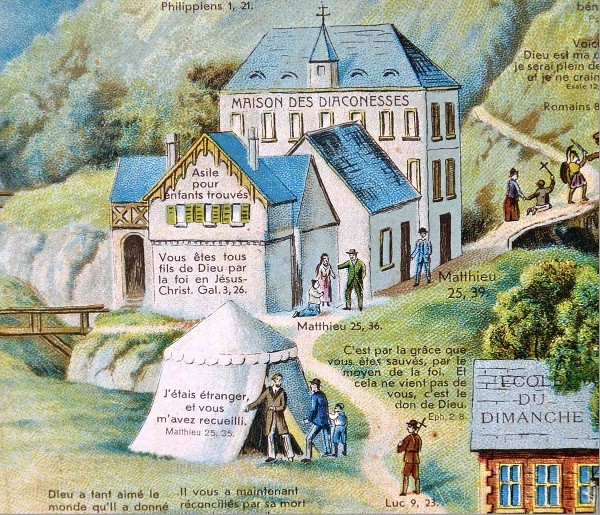 Philippiens 1, 21.
bén
Voici
Dieu est ma
je serai plein de
et je ne crain
Esaïe 12,
Romains 8
MAISON DES DIACONESSES
Asile
pour
enfants trouvés
Vous êtes tous
fils de Dieu par
la foi en Jésus-
Christ. Gal. 3, 26.
Matthieu
25, 39.
Matthieu 25, 36.
C'est par la grâce que
vous êtes sauvés, par le
moyen de la foi. Et
cela ne vient pas de
vous, c'est le
don de Dieu.
Eph. 2, 8.
J'étais étranger,
et vous
m'avez recueilli.
Matthieu 25. 35.
ÉCOLE
DU
DIMANCHE
Luc 9, 23.
Dieu a tant aimé le
monde qu'Il a donné
Il vous a maintenant
réconciliés par sa mort